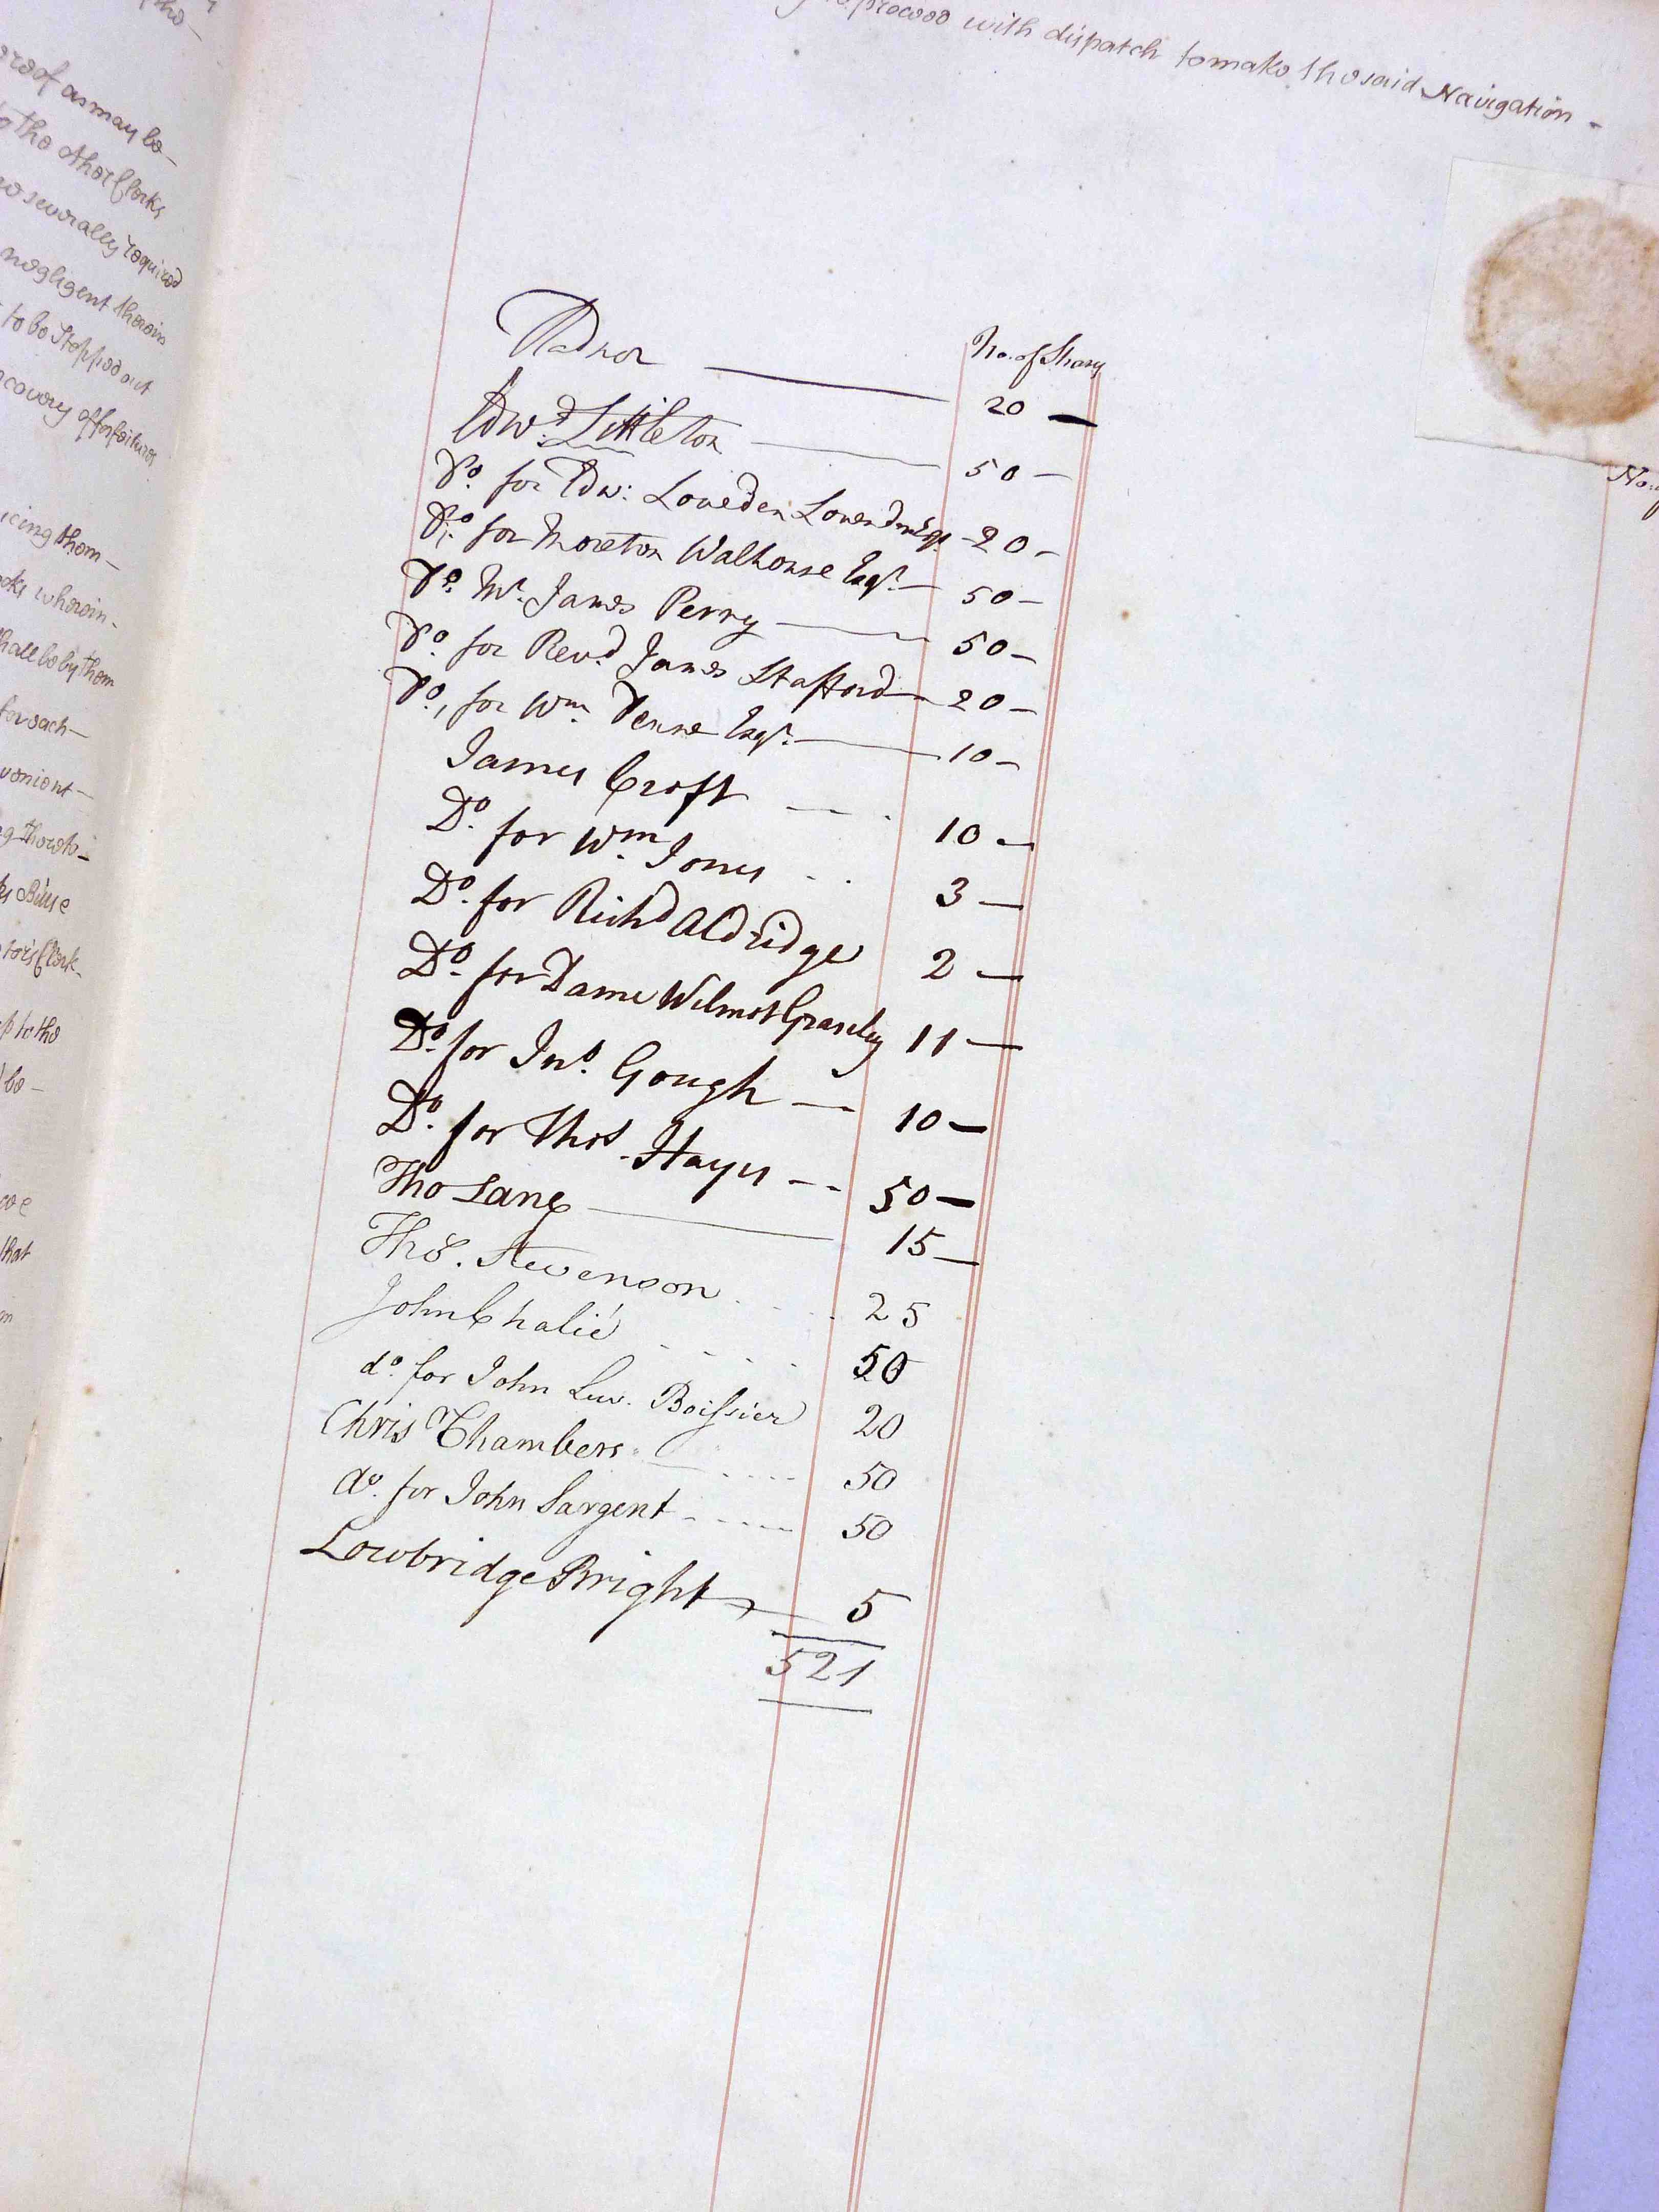 tho
proceed with dispatch to make the said Navigation -
reof as may be -
to the other Clerks
severally required
negligent therein
to be Stopped out
recovery of forfeitures
icing them -
wherein -
shall be by them
for each -
venient -
g thereto -
that
No. of Shares
Radnor 20 -
Edwd. Littleton 50 -
Do. for Edw: Loveden Loveden Esqr. 20 -
Do. for Moreton Walhouse Esqr. 50 -
Do. Mr. James Perry 50 -
Do. for Revd. James Stafford 20 -
Do. for Wm. Tenne Esqr. 10 -
James Croft 10 -
Do. for Wm. Jones 3 -
Do. for Richd Aldridge 2 -
Do. for Dame Wilmot Gresley 11 -
Do. for Jno. Gough 10 -
Do. for Thos. Hayes 50 -
Tho Lane 15 -
Thos. Stevenson 25
John Chalié 50
do. for John Lew. Boissier 20
Chris Chambers 50
do. for John Sargent 50
Lowbridge Bright 5
521